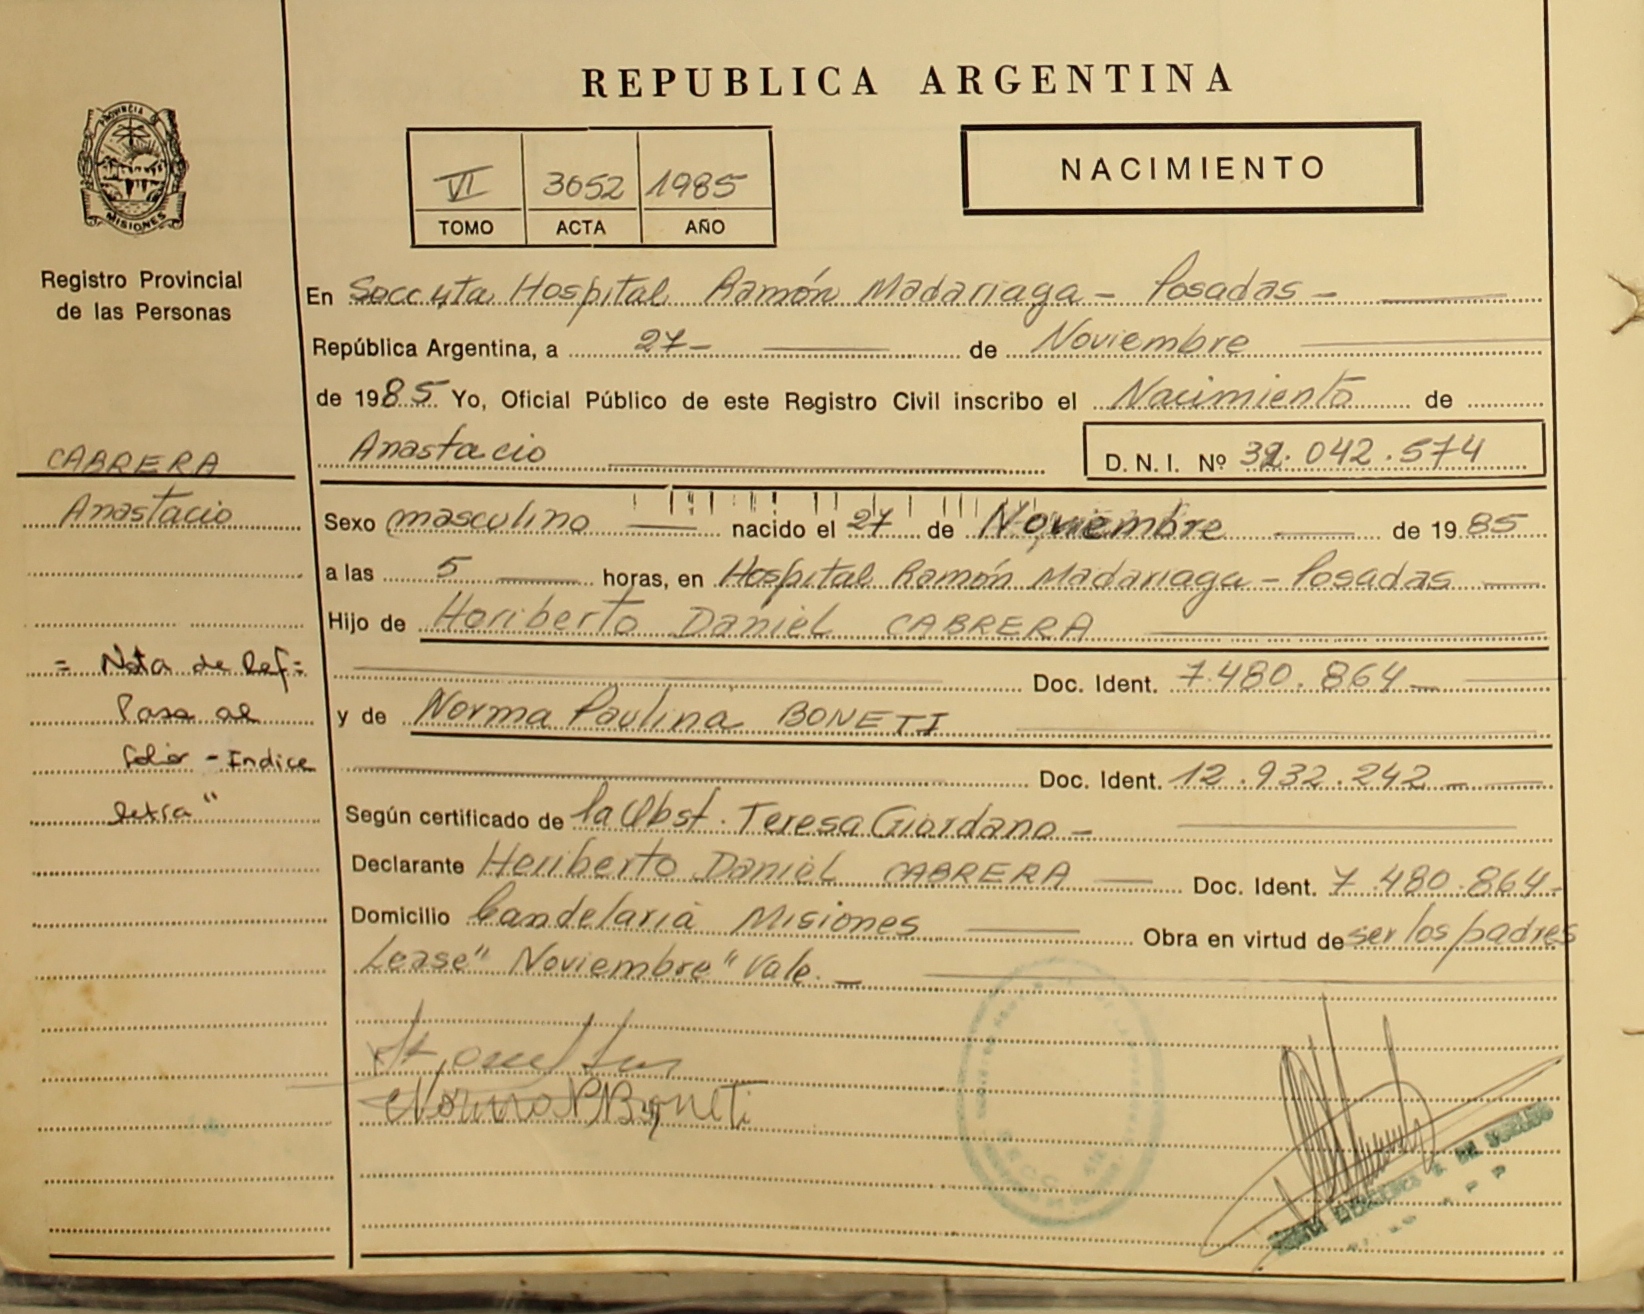 REPUBLICA ARGENTINA
PROVINCIA DE
MISIONES
Registro Provincial
de las Personas
VI 3652 1985
TOMO ACTA AÑO
NACIMIENTO
En Seccuta Hospital Ramón Madariaga - Posadas -
República Argentina, a 27- de Noviembre
de 1985 Yo, Oficial Público de este Registro Civil inscribo el Nacimiento de
Anastacio D. N. I. Nº 32.042.574
CABRERA
Anastacio
Sexo masculino nacido el 27 de Noviembre de 1985
a las 5 horas, en Hospital Ramón Madariaga - Posadas
Hijo de Heriberto Daniel CABRERA
Doc. Ident. 7.480.864
y de Norma Paulina BONETI
Doc. Ident. 12.932.242
Según certificado de la Obst. Teresa Giordano -
Declarante Heriberto Daniel CABRERA Doc. Ident. 7.480.864-
Domicilio Candelaria Misiones Obra en virtud de ser los padres
Lease "Noviembre" Vale.
= Nota de Ref=
Pasa al
folio - Indice
letra"
Norma P Boneti